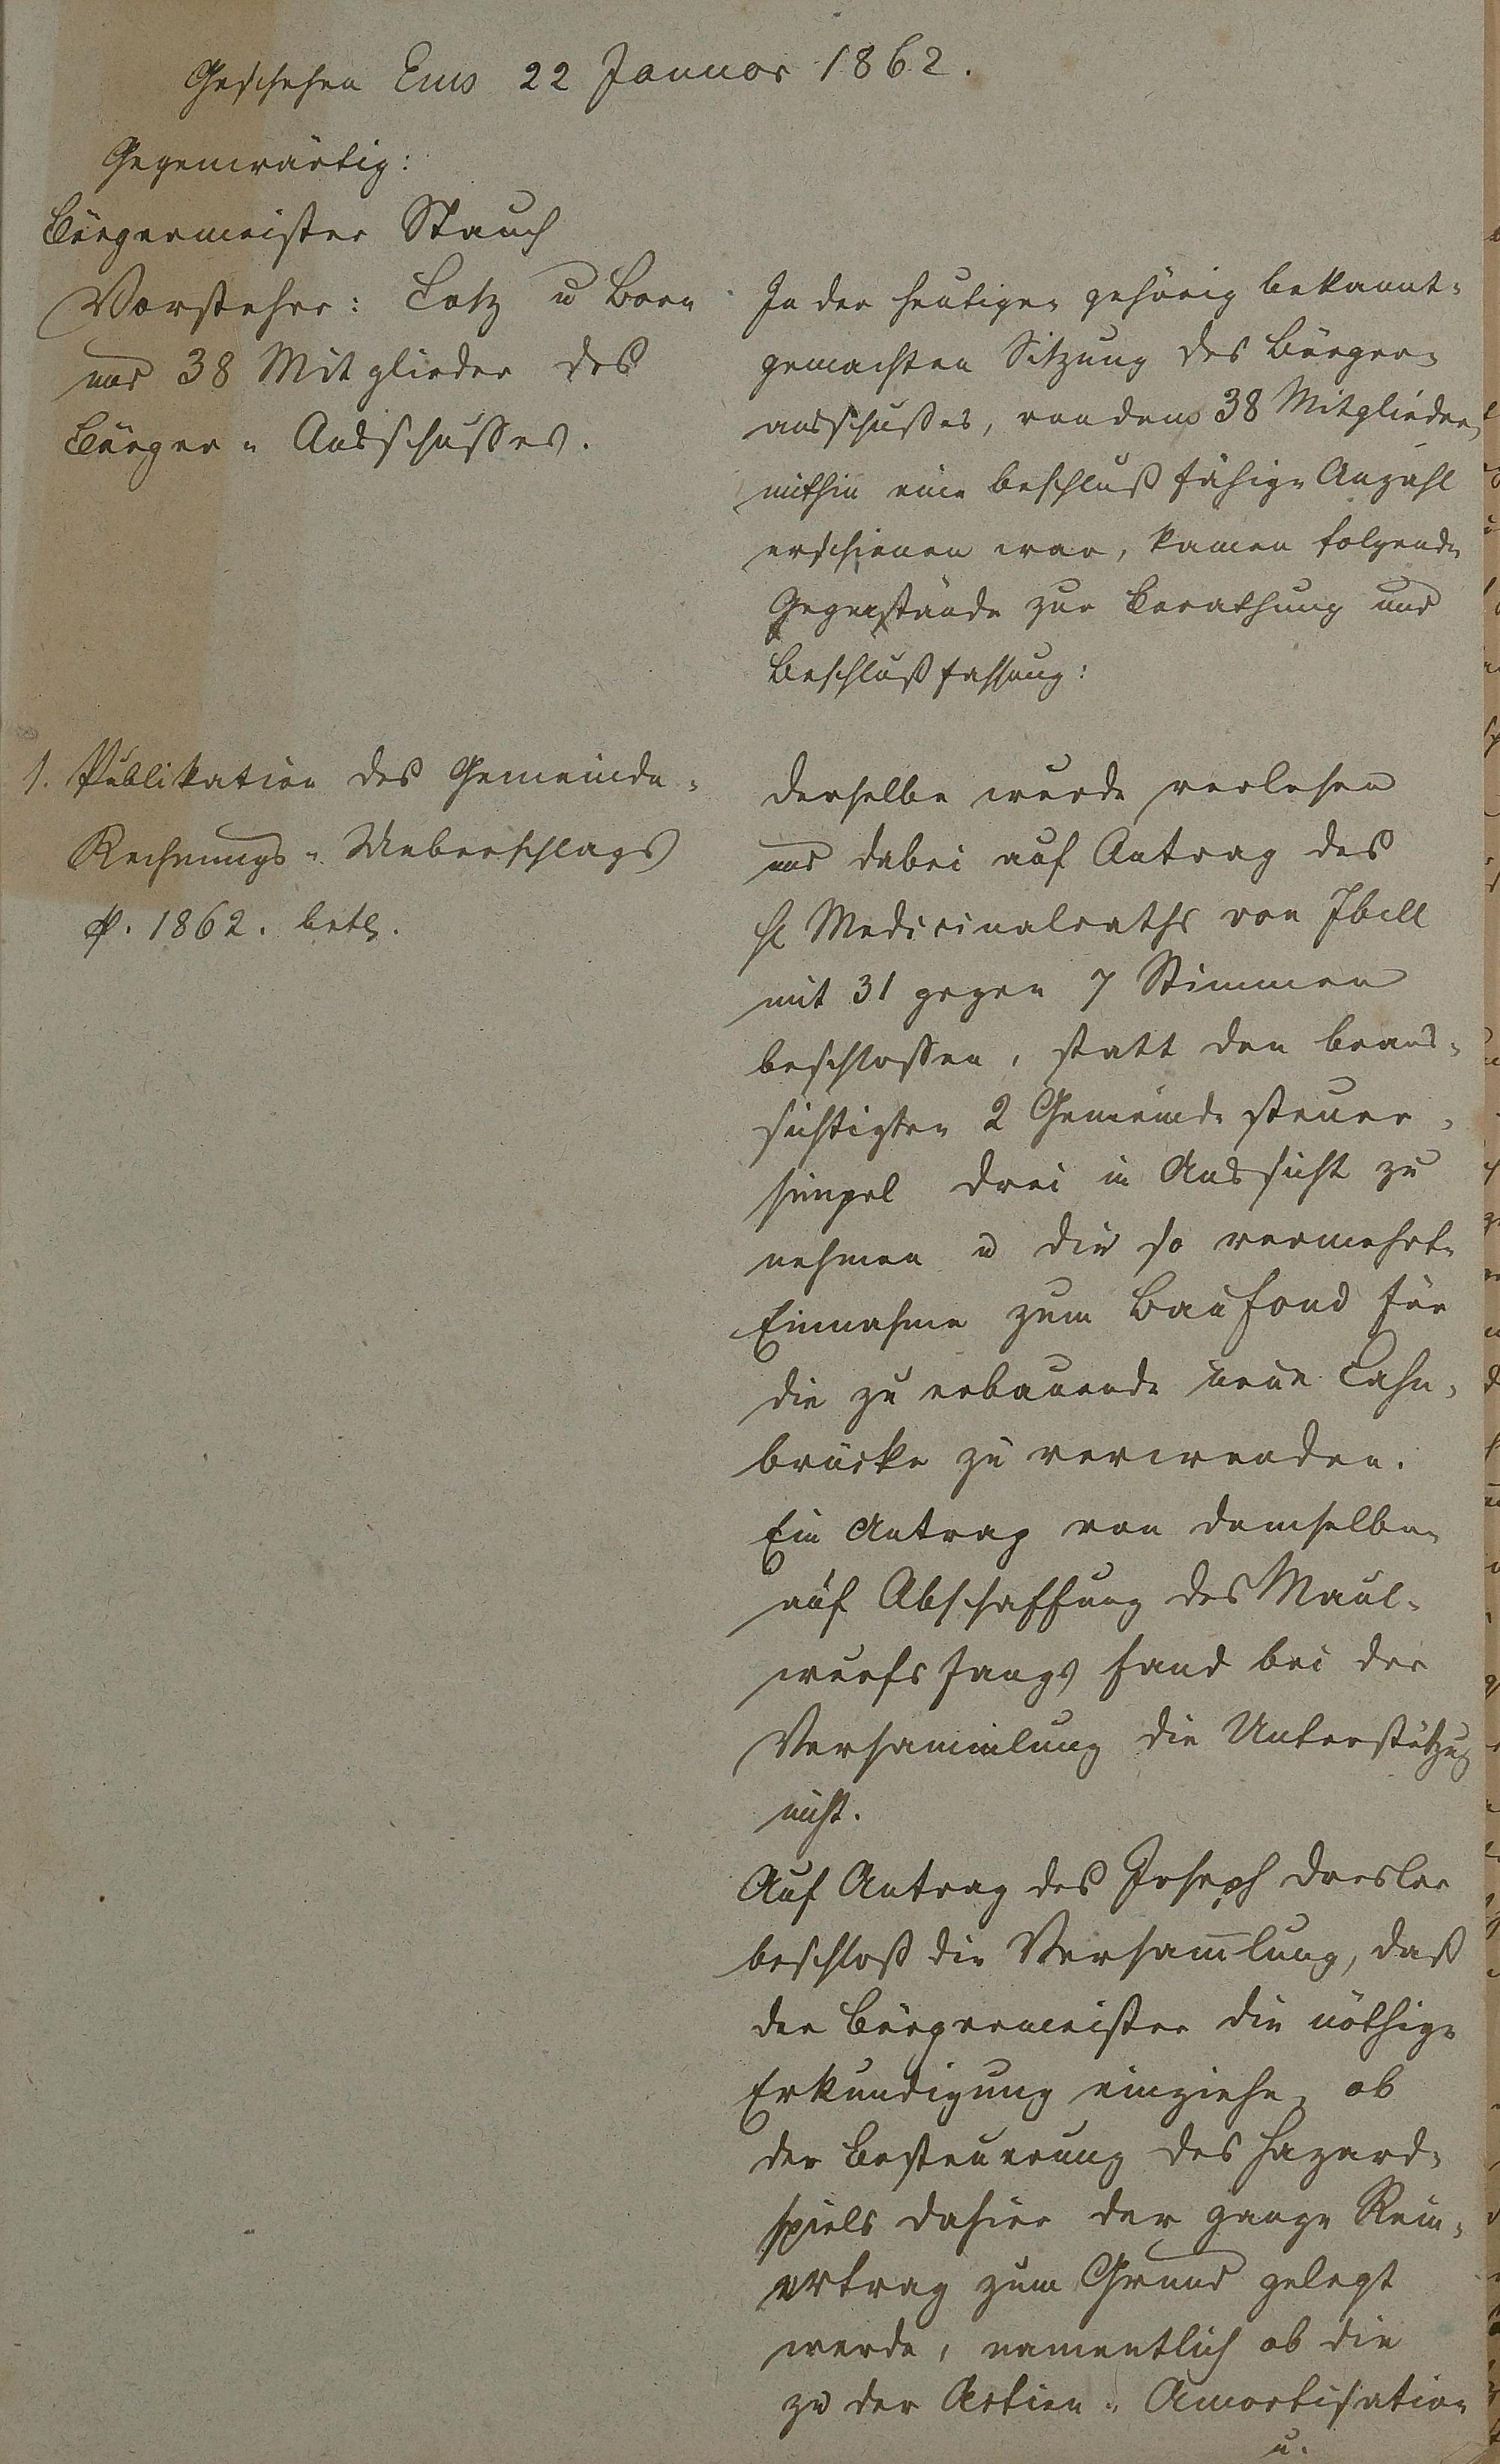 Geschehen Ems 22 Januar 1862.
Gegenwärtig:
Bürgermeister Stauch
Vorsteher: Lotz u Born
und 38 Mitglieder des
Bürger-Ausschusses.
In der heutigen gehörig bekannt-
gemachten Sitzung des Bürger-
ausschußes, von dem 38 Mitglieder,
mithin eine beschlußfähige Anzahl
erschienen war, kamen folgende
Gegenstände zur Berathung und
Beschlußfassung:
1. Publikation des Gemeinde-
Rechnungs-Ueberschlags
p. 1862. betr.
Derselbe wurde verlesen
und dabei auf Antrag des
H Medicinalraths von Ibell
mit 31 gegen 7 Stimmen
beschlossen, statt den beauf-
sichtigten 2 Gemeindesteuer-
simpel drei in Aussicht zu
nehmen u die so vermehrte
Einnahme zum Baufond für
die zu erbauende neue Lahn-
brücke zu verwenden.
Ein Antrag von demselben
auf Abschaffung des Maul-
wurfsfangs fand bei der
Versammlung die Unterstützung
nicht.
Auf Antrag des Joseph Dresler
beschloß die Versam̄lung, daß
der Bürgermeister die nöthige
Erkundigung einziehe, ob
der Besteuerung des Hazard-
spiels dahier der ganze Rein-
ertrag zum Grund gelegt
werde, namentlich ob die
zu der Actien-Amortisation
u.